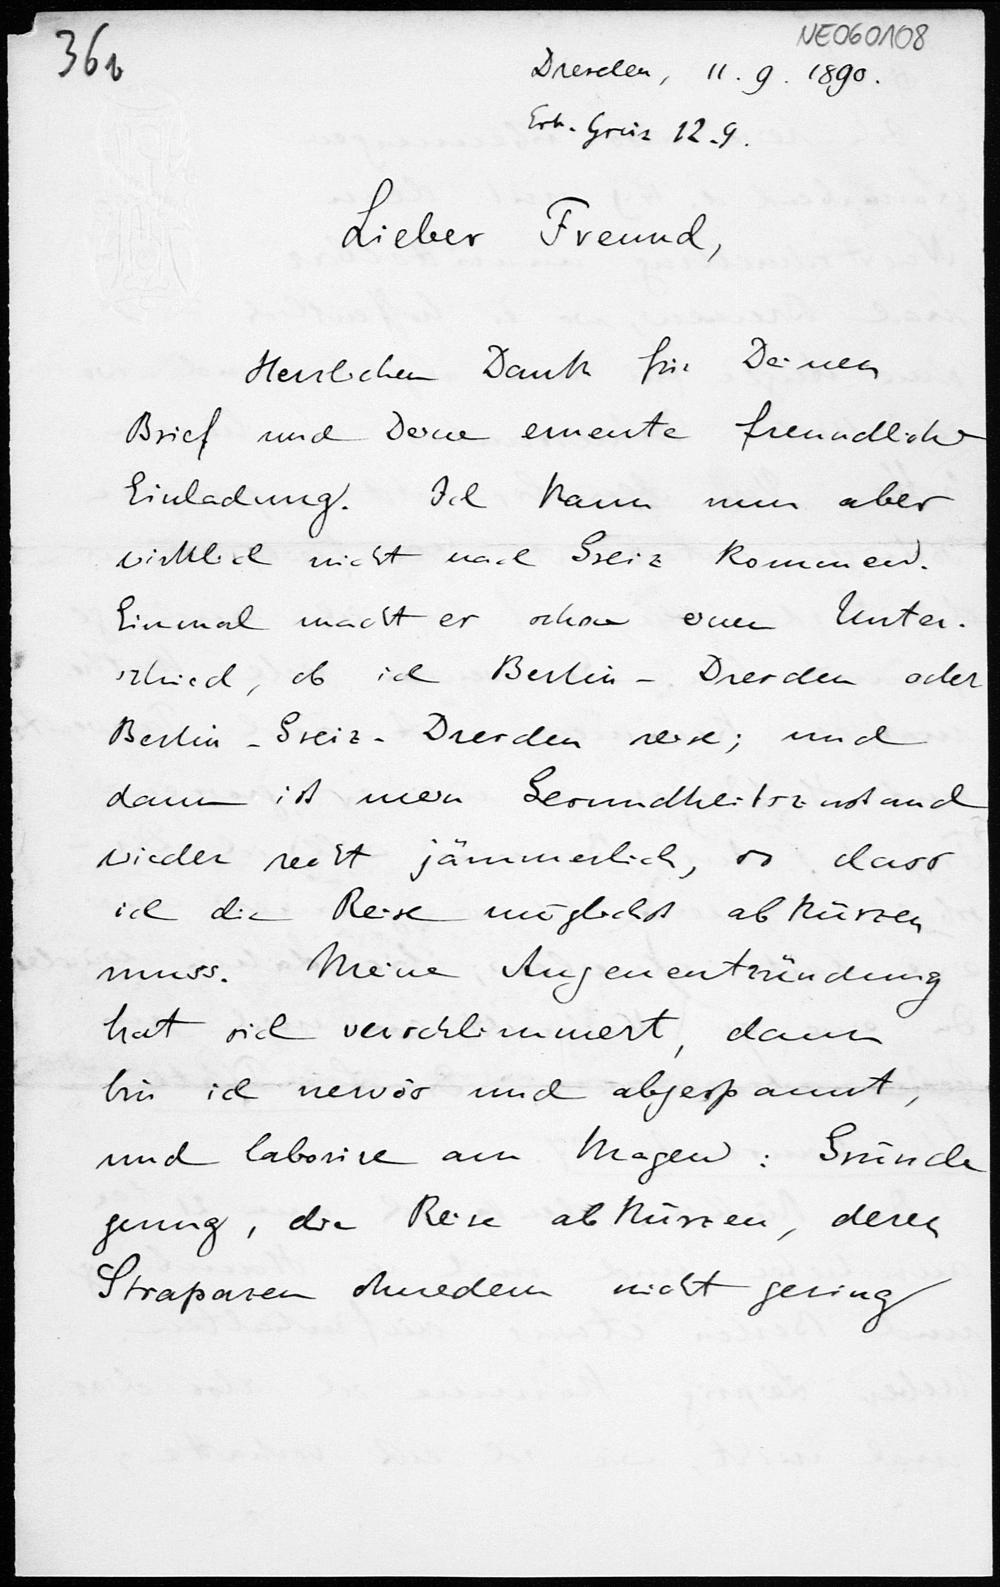 36b
NE060108
Dresden, 11. 9. 1890.
Erh. Greiz 12.9.
Lieber Freund,
Herzlichen Dank für Deinen
Brief und Deine erneute freundliche
Einladung. Ich kann nun aber
wirklich nicht nach Greiz kommen.
Einmal macht es schon einen Unter-
schied, ob ich Berlin - Dresden oder
Berlin - Greiz - Dresden reise; und
dann ist mein Gesundheitszustand
wieder recht jämmerlich, so dass
ich die Reise möglichst abkürzen
muss. Meine Augenentzündung
hat sich verschlimmert, dann
bin ich nervös und abgespannt,
und laborire am Magen: Gründe
genug, die Reise abkürzen, deren
Strapazen ohnedem nicht gering